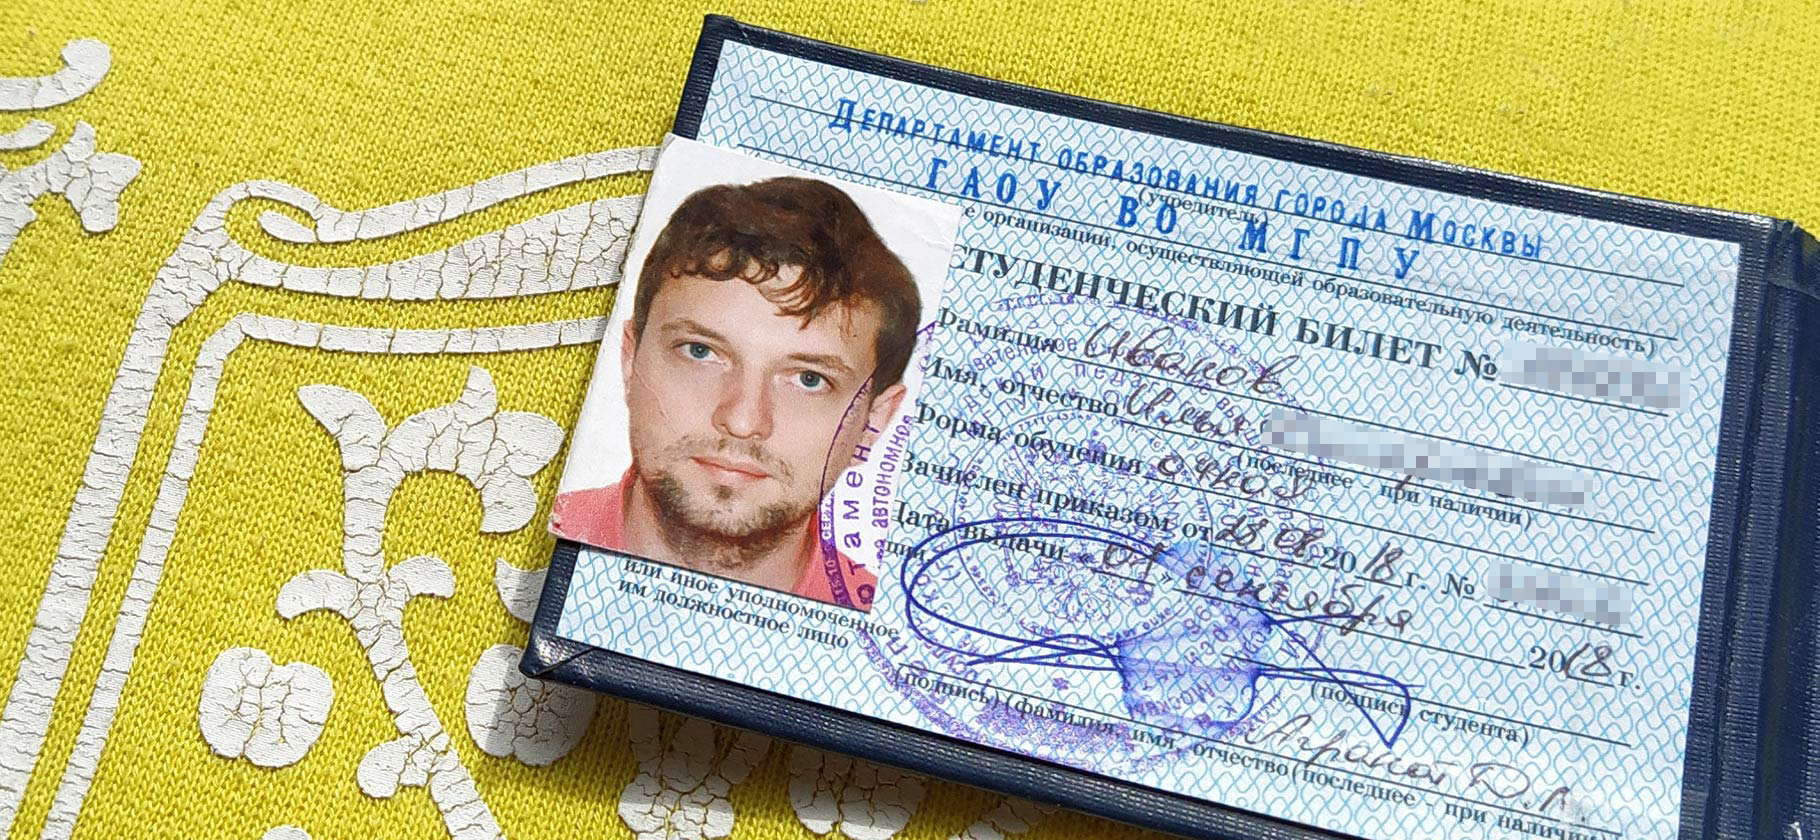 Департамент образования города Москвы
(учредитель)
ГАОУ ВО МГПУ
е организации, осуществляющей образовательную деятельность)
СТУДЕНЧЕСКИЙ БИЛЕТ №
Фамилия Иванов
Имя, отчество Илья
(последнее - при наличии)
Форма обучения очная
Зачислен приказом от 28.08.2018 г. №
Дата выдачи «01» сентября 2018 г.
(подпись студента)
или иное уполномоченное
им должностное лицо
(подпись) (фамилия, имя, отчество (последнее - при наличии